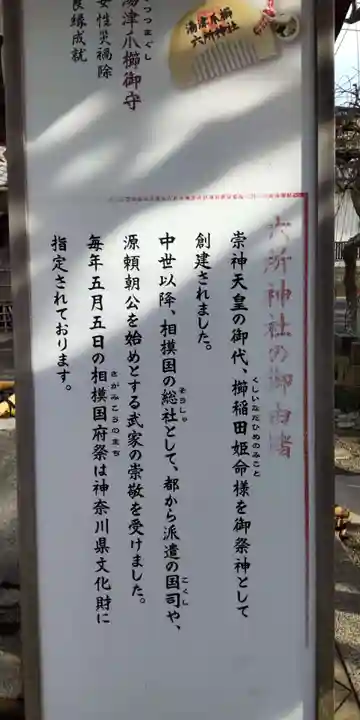 湯津爪櫛
六所神社
つまぐし
湯津爪櫛御守
女性災禍除
良縁成就
六所神社の御由緒
崇神天皇の御代、櫛稲田姫命様を御祭神として
くしいなだひめのみこと
創建されました。
中世以降、相模国の総社として、都から派遣の国司や、
そうしゃ
こくし
源頼朝公を始めとする武家の崇敬を受けました。
毎年五月五日の相模国府祭は神奈川県文化財に
さがみこうのまち
指定されております。